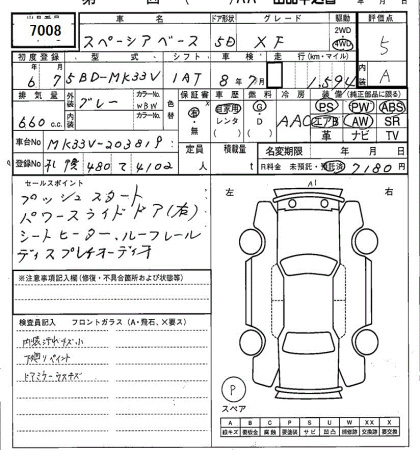 7008
車名 ドア形状 グレード 駆動 評価点
スペーシアベース 5D XF 2WD 4WD 5
初度登録 型式 シフト 車検 走行 (km・マイル)
6年7月 5BD-MK33V 1AT 8年7月 A
排気量 外装 カラーNo. 色替 保証書 車歴 燃料 冷房 装備 (純正部品に限る)
660cc グレー 内装 カラーNo. WBW 有・無 自家用 レンタ G・D AAC PS PW ABS
エアB AW SR
革 ナビ TV
車台No MK33V-203819 定員 人 積載量 t 名変期限 年 月 日
登録No 札幌 480 て 4102 R料金 未預託・預託済 7180円
セールスポイント
プッシュスタート
パワースライドドア(右)
シートヒーター、ルーフレール
ディスプレイオーディオ
※注意事項記入欄(修復・不具合箇所および状態等)
検査員記入 フロントガラス(A・飛石、×要ス)
内装汚れキズ小
下廻りペイント
ドアミラーウスキズ
左 右
A1
P
スペア
A B C P S U W X XX
線キズ 要板金 腐蝕 要塗装 サビ 凹ス 補修跡 要交換 交換済